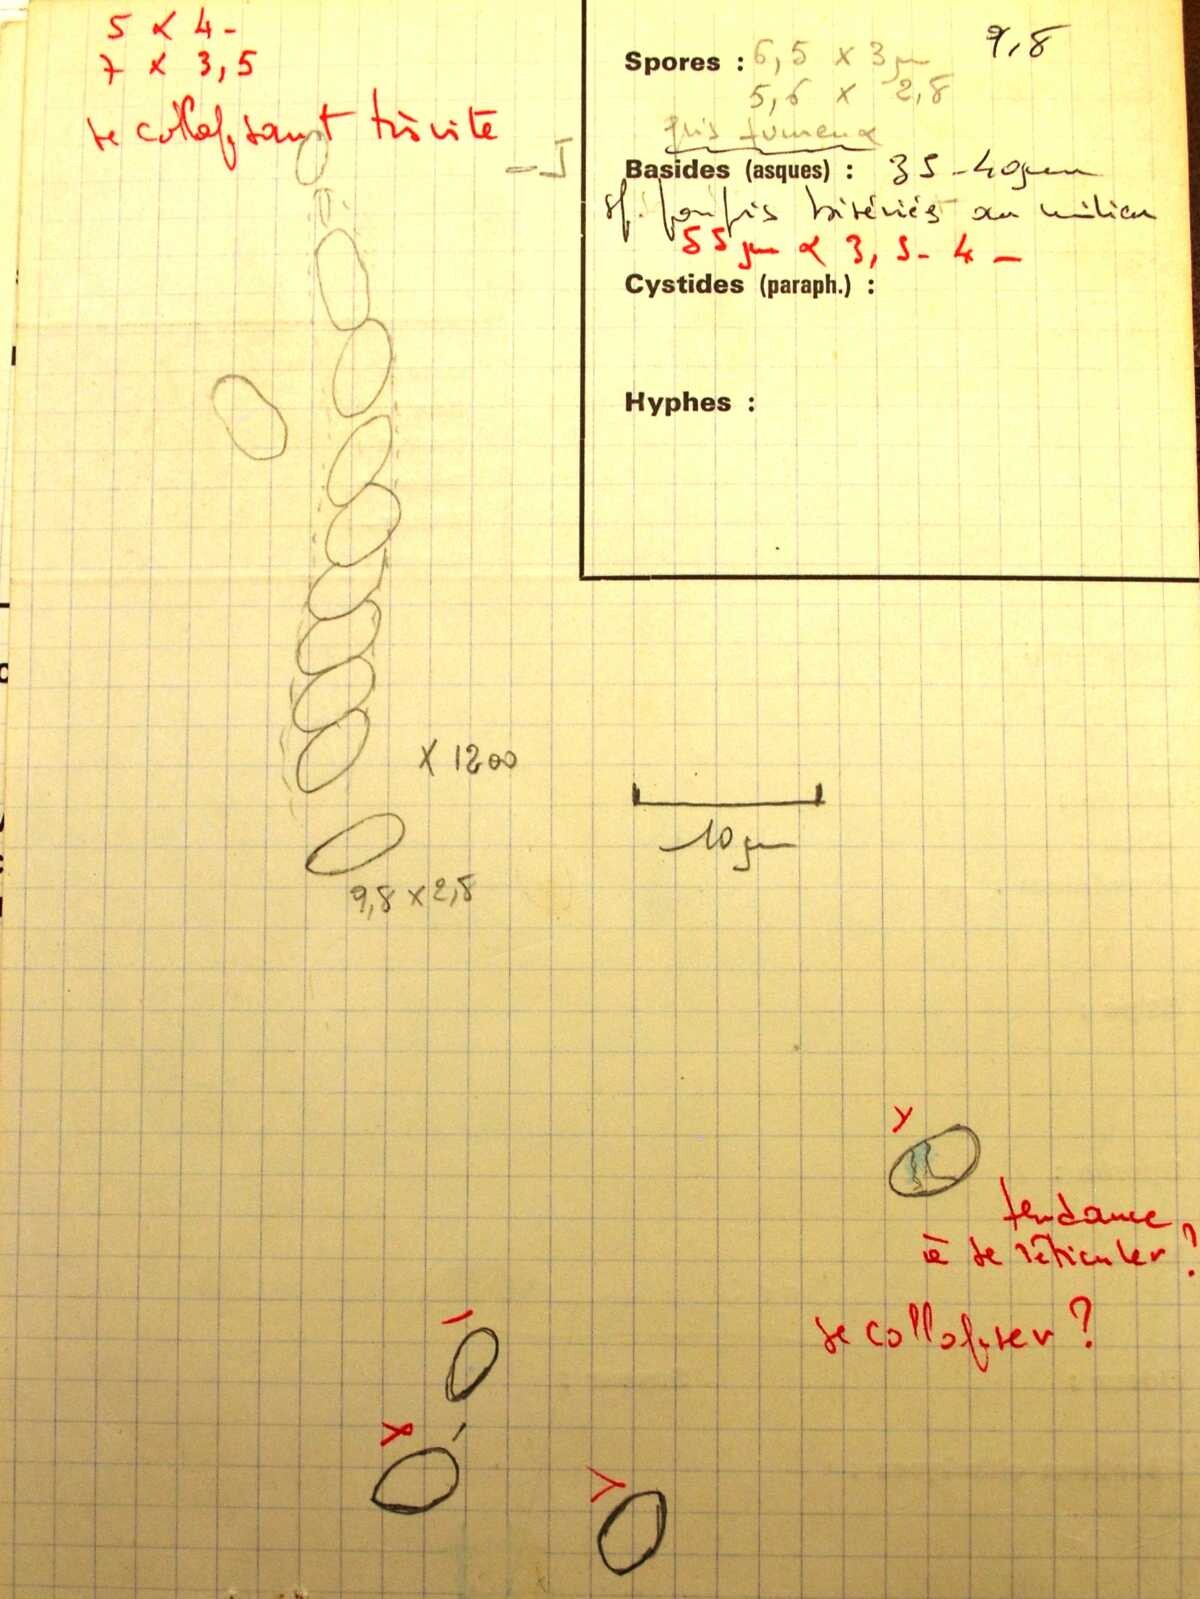 5 x 4 -
7 x 3,5
se collapsant très vite
9,8
Spores : 6,5 x 3 µm
5,6 x 2,8
gris fumeux
- J
Basides (asques) : 35 - 40 µm
sp. parfois bisériés au milieu
55 µm x 3,5 - 4 -
Cystides (paraph.) :
Hyphes :
X 1200
10 µm
9,8 x 2,8
tendance
à se réticuler ?
se collapser ?